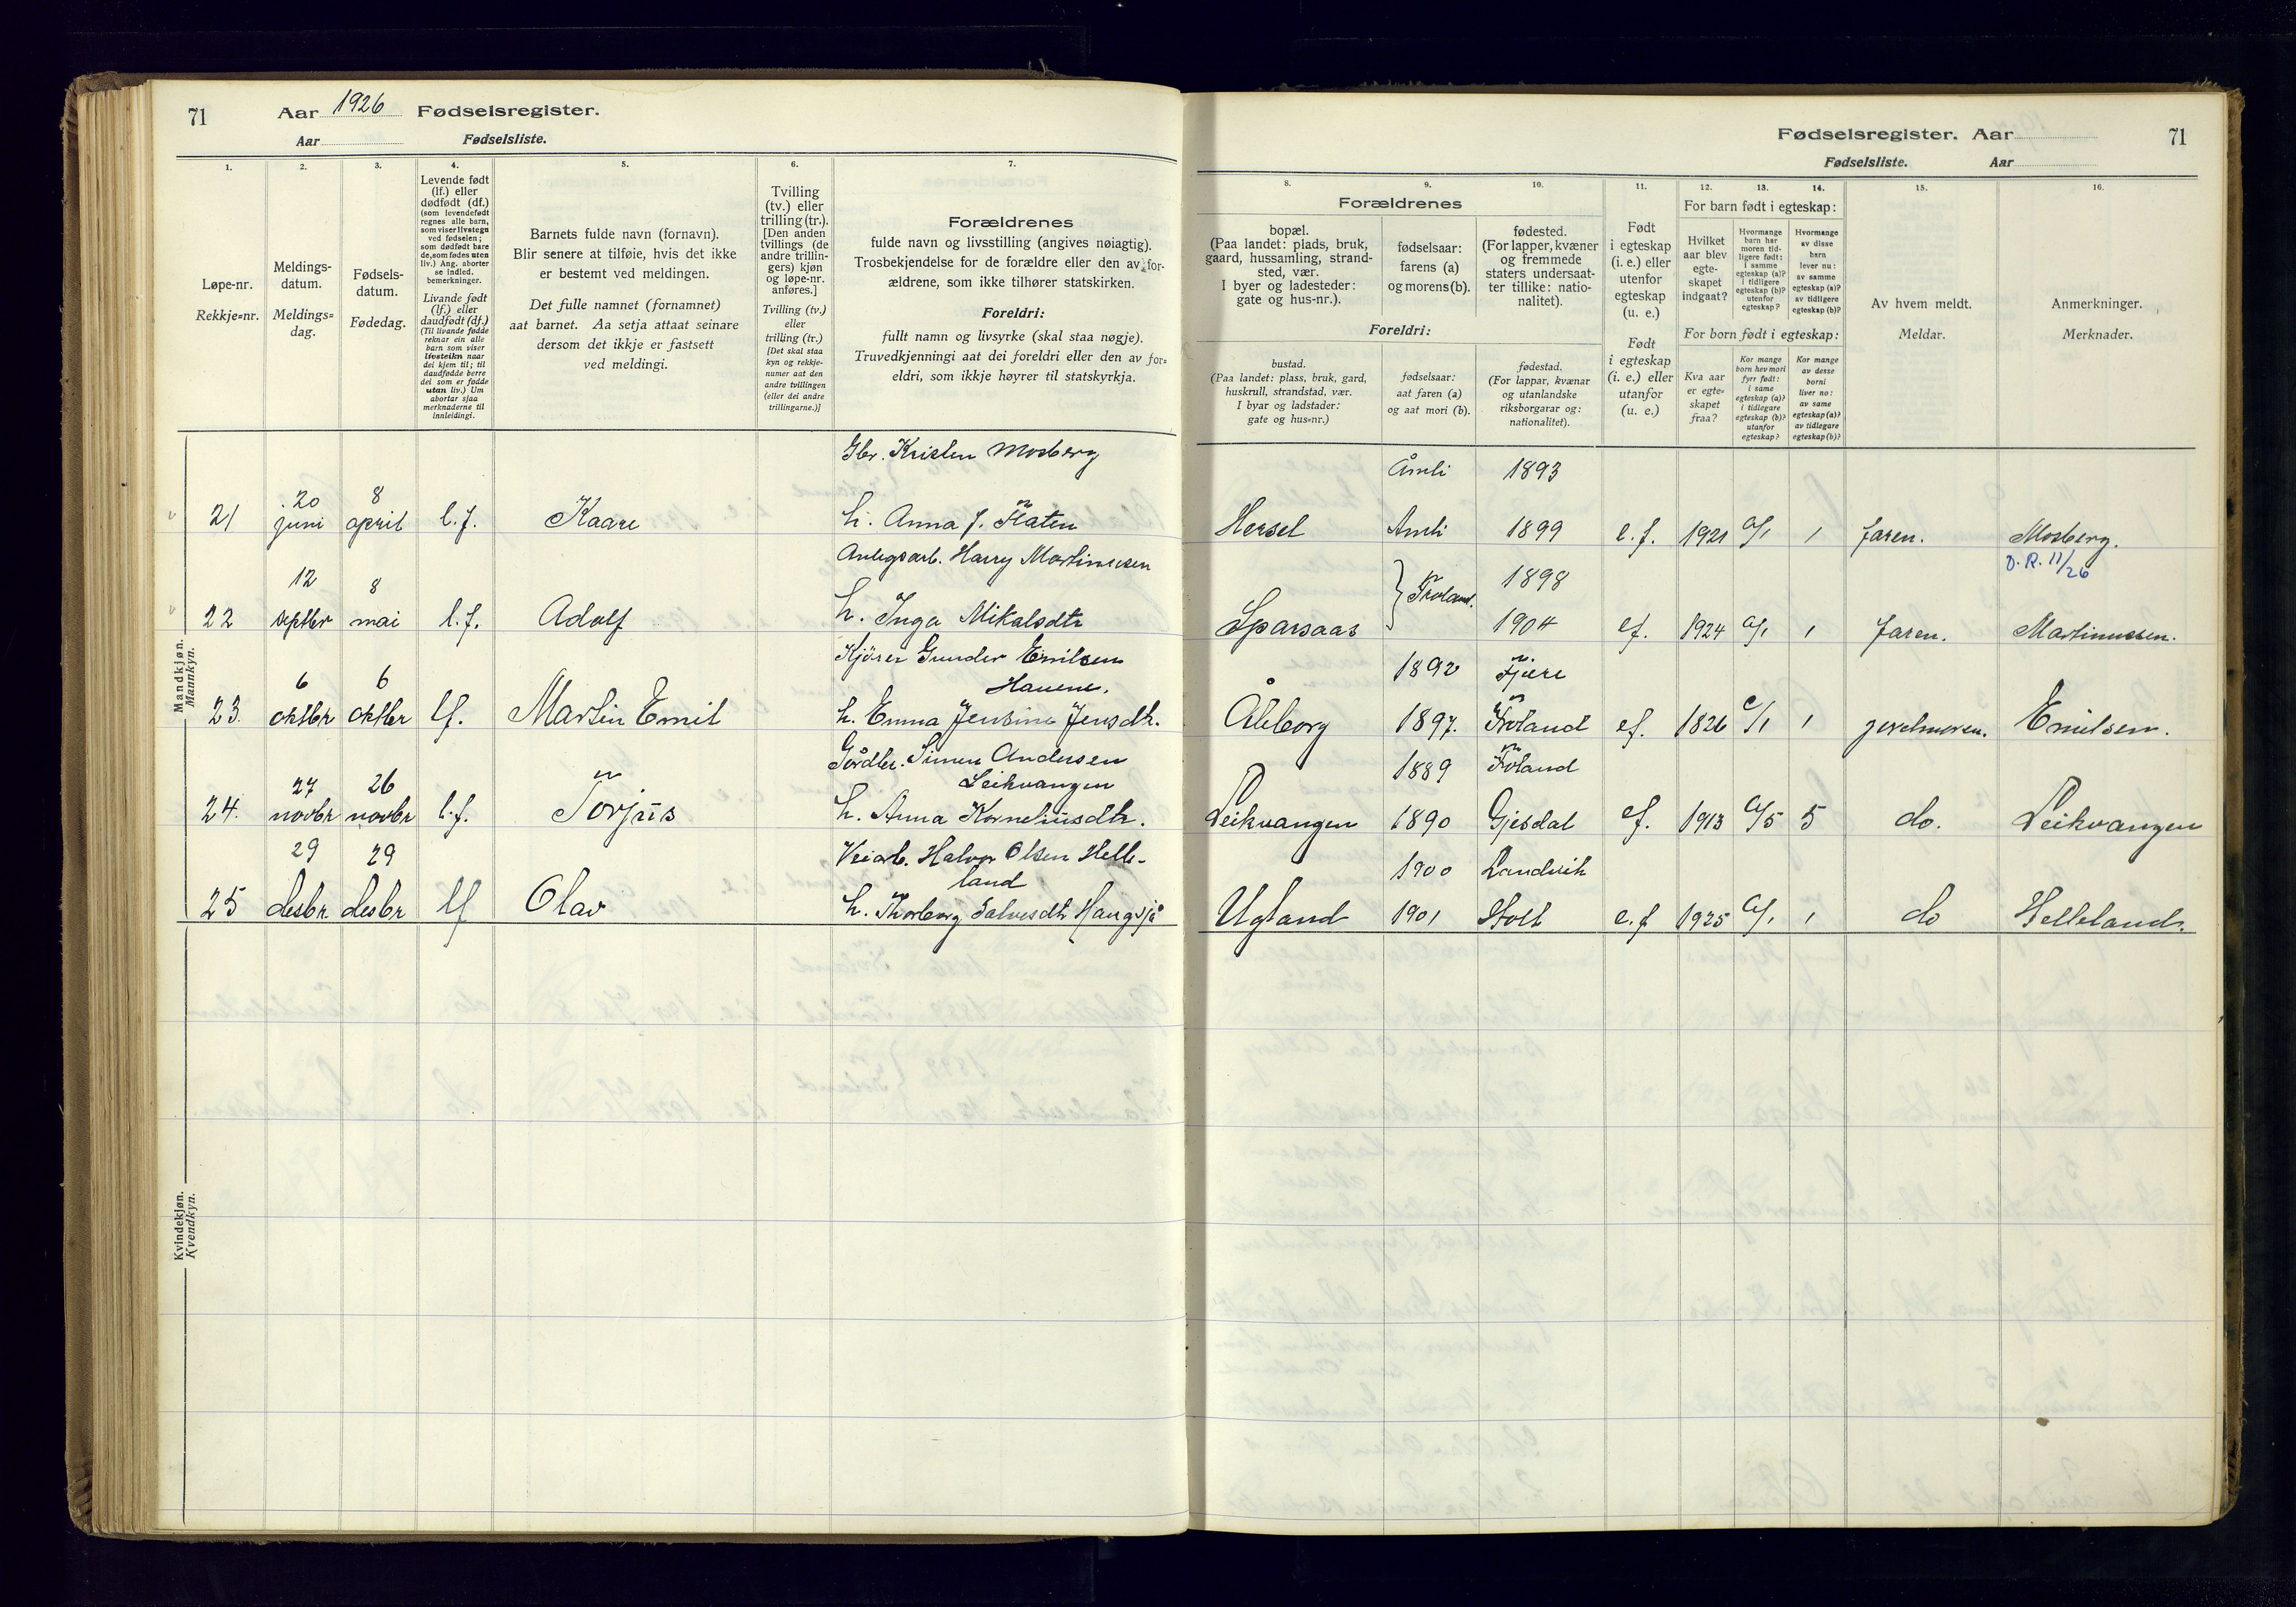 71 Aar 1926 Fødselsregister.
Aar Fødselsliste.
1. 2. 3. 4. 5. 6. 7.
Løpe-nr.
Rekkje=nr.
Meldings-
datum.
Meldings=
dag.
Fødsels-
datum.
Fødedag.
Levende født
(lf.) eller
dødfødt (df.)
(som levendefødt
regnes alle barn,
som viser livstegn
ved fødselen;
som dødfødt bare
de, som fødes uten
liv.) Ang. aborter
se indled.
bemerkninger.
Livande født
(lf.) eller
daudfødt (df.)
(Til livande fødde
reknar ein alle
barn som viser
livsteikn naar
dei kjem til; til
daudfødde berre
dei som er fødde
utan liv.) Um
abortar sjaa
merknaderne til
innleidingi.
Barnets fulde navn (fornavn).
Blir senere at tilføie, hvis det ikke
er bestemt ved meldingen.
Det fulle namnet (fornamnet)
aat barnet. Aa setja attaat seinare
dersom det ikkje er fastsett
ved meldingi.
Tvilling
(tv.) eller
trilling (tr.).
[Den anden
tvillings (de
andre trillin-
gers) kjøn
og løpe-nr.
anføres.]
Tvilling (tv.)
eller
trilling (tr.)
[Det skal staa
kyn og rekkje-
numer aat den
andre tvillingen
(eller dei andre
trillingarne.)]
Forældrenes
fulde navn og livsstilling (angives nøiagtig).
Trosbekjendelse for de forældre eller den av for-
ældrene, som ikke tilhører statskirken.
Foreldri:
fullt namn og livsyrke (skal staa nøgje).
Truvedkjenningi aat dei foreldri eller den av for=
eldri, som ikkje høyrer til statskyrkja.
Mandkjøn.
Mannkyn.
Gbr. Kristen Mosberg
21 20 juni 8 april l.f. Kaare h. Anna J. Flaten
Anlegsarb. Harry Martinussen
22 12 septbr 8 mai l.f. Adolf h. Inga Mikalsdtr
Kjörer Gunder Emilsen
Hauene.
23. 6 oktbr 6 oktbr lf. Martin Emil h. Emma Jensine Jensdtr.
Gårdbr. Simen Andersen
Leikvangen
24. 27 novbr 26 novbr l.f. Torjus h. Anna Korneliusdtr.
Veiarb. Halvor Olsen Helle-
land
25 29 desbr 29 desbr lf Olav h. Thorborg Salvesdtr Haugsjå
Kvindekjøn.
Kvendkyn.
Fødselsregister. Aar 71
Fødselsliste. Aar
8. 9. 10. 11. 12. 13. 14. 15. 16.
Forældrenes
bopæl.
(Paa landet: plads, bruk,
gaard, hussamling, strand-
sted, vær.
I byer og ladesteder:
gate og hus-nr.).
fødselsaar:
farens (a)
og morens (b).
fødested.
(For lapper, kvæner
og fremmede
staters undersaat-
ter tillike: natio-
nalitet).
Foreldri:
bustad.
(Paa landet: plass, bruk, gard,
huskrull, strandstad, vær.
I byar og ladstader:
gate og hus=nr.)
fødselsaar:
aat faren (a)
og aat mori (b).
fødestad.
(For lappar, kvænar
og utanlandske
riksborgarar og:
nationalitet).
Født
i egteskap
(i. e.) eller
utenfor
egteskap
(u. e.)
Født
i egteskap
(i. e.) eller
utanfor
(u. e.)
For barn født i egteskap:
Hvilket
aar blev
egte-
skapet
indgaat?
Hvormange
barn har
moren tid-
ligere født:
i samme
egteskap (a)?
i tidligere
egteskap (b)?
utenfor
egteskap?
Hvormange
av disse
barn
lever nu:
av samme
egteskap (a)?
av tidligere
egteskap (b)?
For born født i egteskap:
Kva aar
er egte=
skapet
fraa?
Kor mange
born hev mori
fyrr født:
i same
egteskap (a)?
i tidlegare
egteskap (b)?
utanfor
egteskap?
Kor mange
av desse
borni
liver no:
av same
egteskap (a)?
av tidlegare
egteskap (b)?
Av hvem meldt.
Meldar.
Anmerkninger.
Merknader.
Åmli 1893
Hersel Åmli 1899 e.f. 1921 a/1 1 faren. Mosberg.
D.R. 11/26
Froland. 1898
Sparsaas 1904 ef. 1924 a/1 1 faren. Martinussen.
1892 Fjære
Ålborg 1897. Froland ef. 1826 a/1 1 jordmoren. Emilsen.
1889 Froland
Leikvangen 1890 Gjesdal ef. 1913 a/5 5 do. Leikvangen
1900 Landvik
Ugland 1901 Holt e.f 1925 a/1 1 do Helleland.